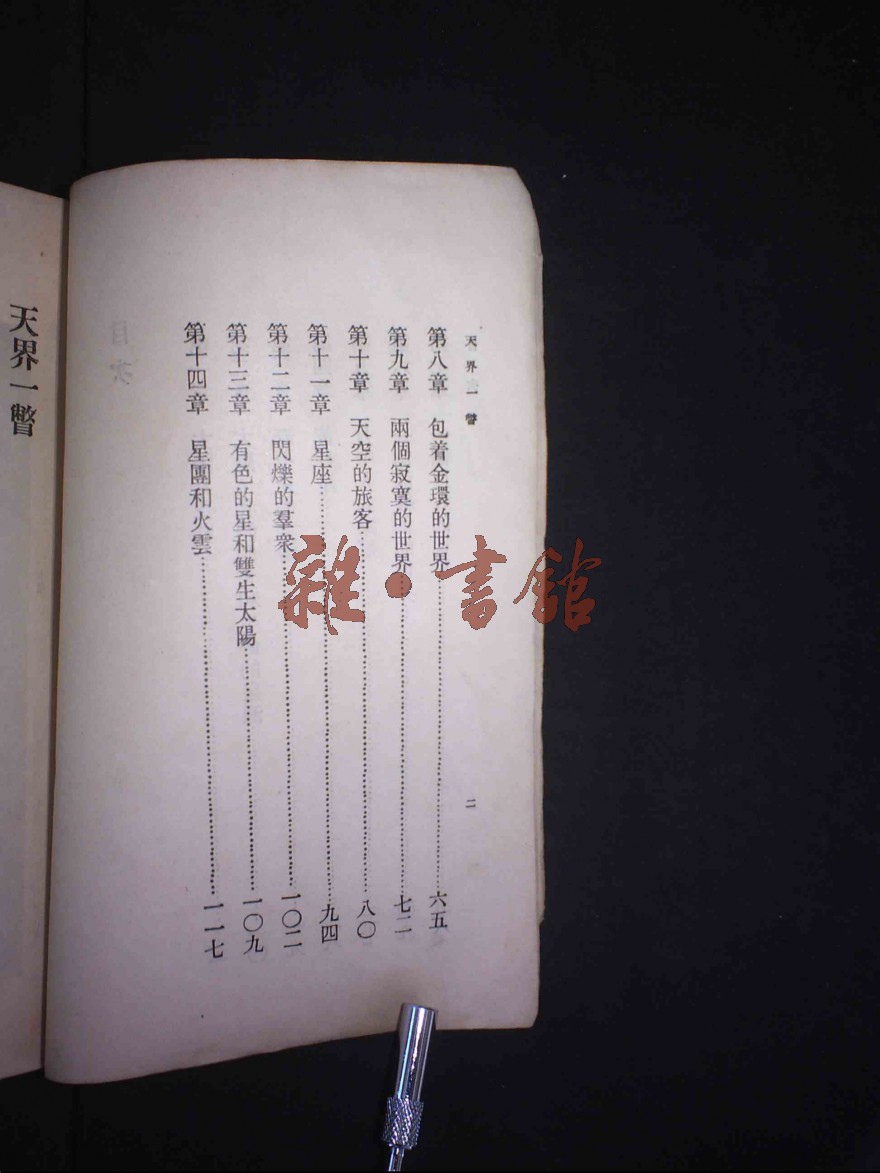 天界一瞥
第八章 包着金環的世界……六五
第九章 兩個寂寞的世界……七二
第十章 天空的旅客……八〇
第十一章 星座……九四
第十二章 閃爍的羣衆……一〇二
第十三章 有色的星和雙生太陽……一〇九
第十四章 星團和火雲……一一七
二
天界一瞥
雜·書館